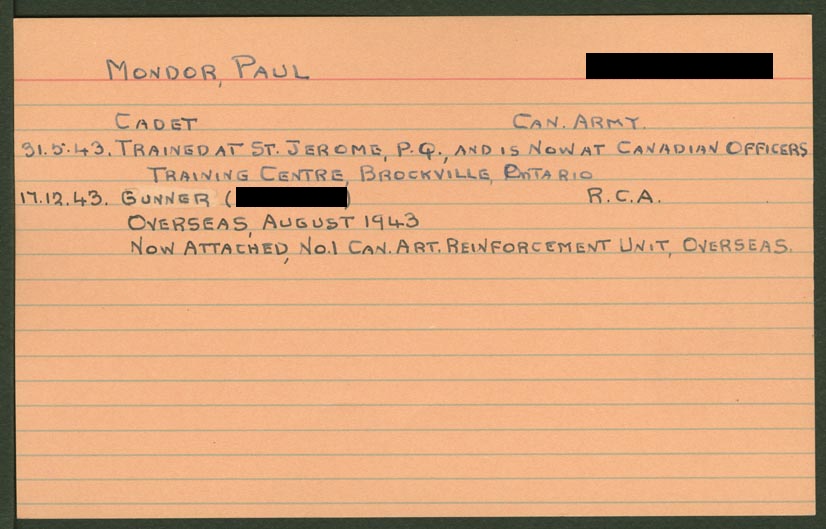 MONDOR, PAUL
CADET CAN. ARMY.
31.5.43. TRAINED AT ST. JEROME, P.Q., AND IS NOW AT CANADIAN OFFICERS
TRAINING CENTRE, BROCKVILLE, ONTARIO
17.12.43. GUNNER ( ) R.C.A.
OVERSEAS, AUGUST 1943
NOW ATTACHED, NO.1 CAN. ART. REINFORCEMENT UNIT, OVERSEAS.